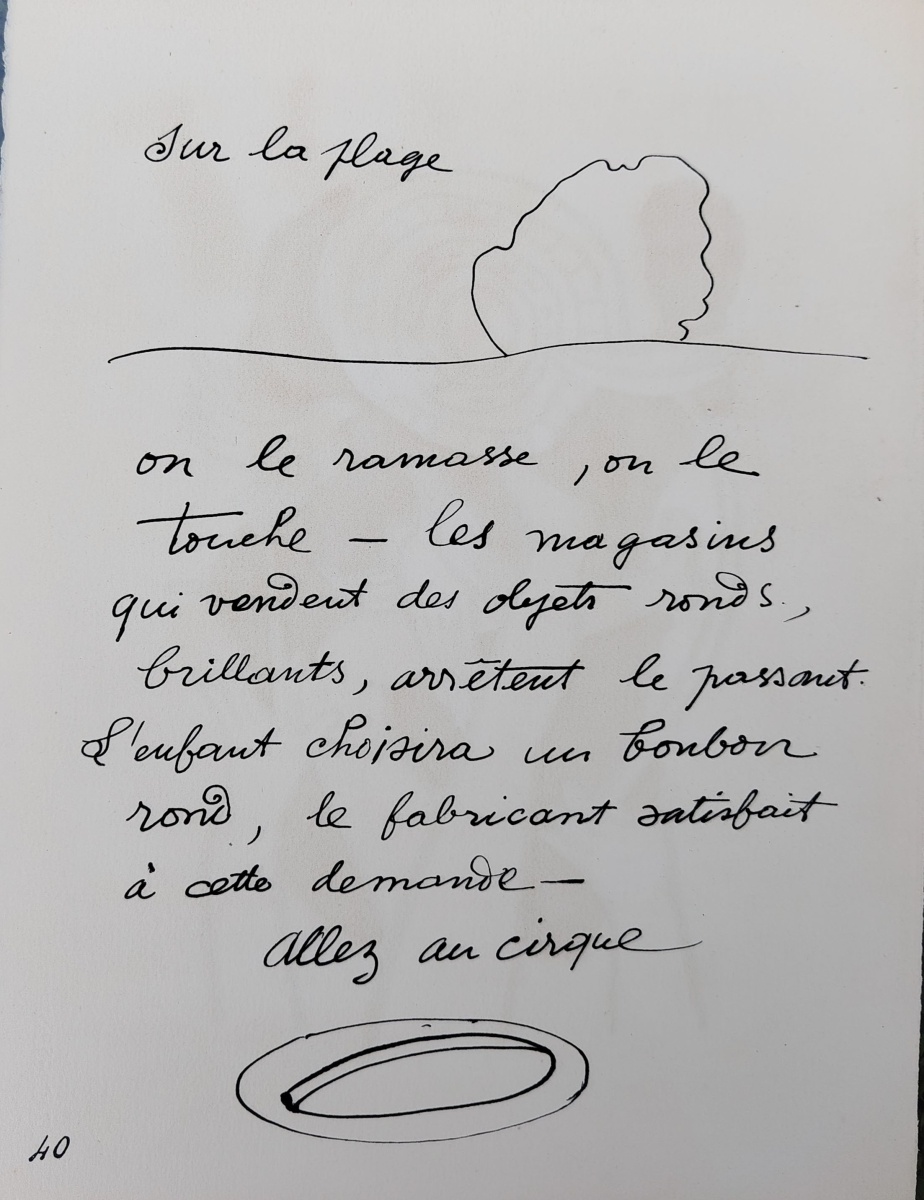 Sur la plage
on le ramasse, on le
touche — les magasins
qui vendent des objets ronds,
brillants, arrêtent le passant.
L'enfant choisira un bonbon
rond, le fabricant satisfait
à cette demande —
Allez au cirque
40